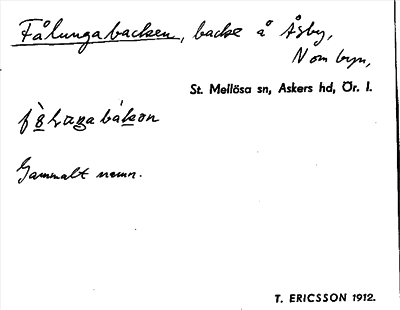 Fålungabacken, backe å Åsby,
N om byn,
St. Mellösa sn, Askers hd, Ör. l.
Gammalt namn.
T. ERICSSON 1912.